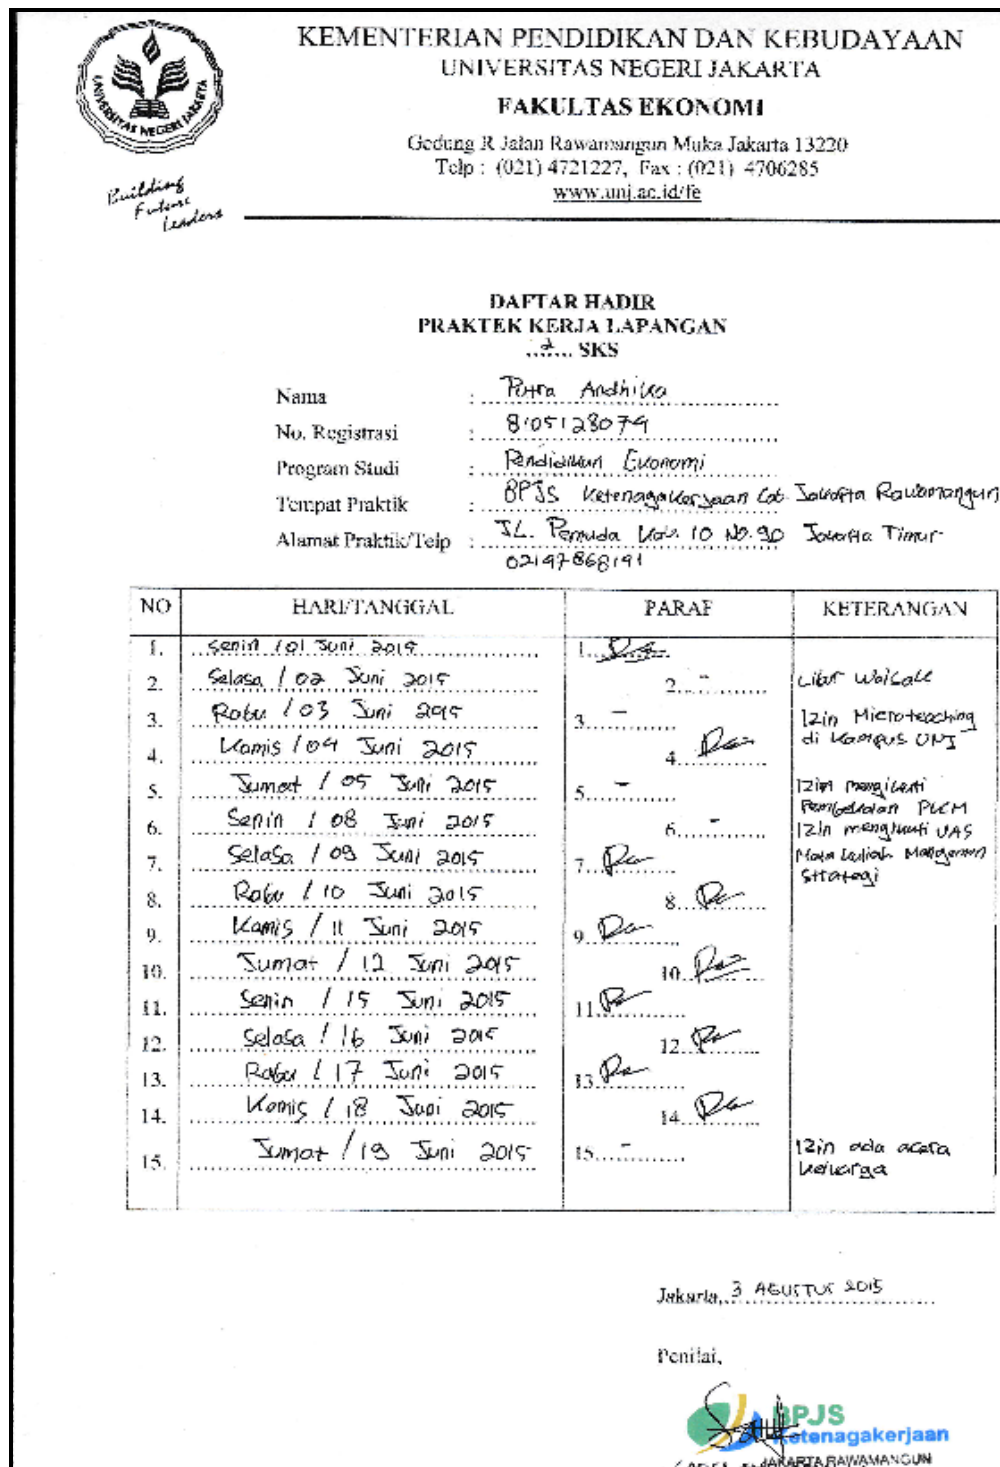 KEMENTERIAN PENDIDIKAN DAN KEBUDAYAAN
UNIVERSITAS NEGERI JAKARTA
FAKULTAS EKONOMI
Gedung R Jalan Rawamangun Muka Jakarta 13220
Telp : (021) 4721227, Fax : (021) 4706285
www.unj.ac.id/fe
UNIVERSITAS NEGERI JAKARTA
Building
Future
Leaders
DAFTAR HADIR
PRAKTEK KERJA LAPANGAN
..2.... SKS
Nama : Putra Andhika
No. Registrasi : 8105128074
Program Studi : Pendidikan Ekonomi
Tempat Praktik : BPJS Ketenagakerjaan Cab Jakarta Rawamangun
Alamat Praktik/Telp : JL. Pemuda Kav. 10 No. 90 Jakarta Timur
02147868191
NO HARI/TANGGAL PARAF KETERANGAN
1. Senin / 01 Juni 2015 1.
2. Selasa / 02 Juni 2015 2. - Libur Waisak
3. Rabu / 03 Juni 2015 3. - Izin Microteaching
di Kampus UNJ
4. Kamis / 04 Juni 2015 4.
5. Jumat / 05 Juni 2015 5. - Izin mengikuti
Pembekalan PKM
6. Senin / 08 Juni 2015 6. - Izin mengikuti UAS
7. Selasa / 09 Juni 2015 7. Mata kuliah Manajemen
Strategi
8. Rabu / 10 Juni 2015 8.
9. Kamis / 11 Juni 2015 9.
10. Jumat / 12 Juni 2015 10.
11. Senin / 15 Juni 2015 11.
12. Selasa / 16 Juni 2015 12.
13. Rabu / 17 Juni 2015 13.
14. Kamis / 18 Juni 2015 14.
15. Jumat / 19 Juni 2015 15. - Izin ada acara
keluarga
Jakarta, 3 AGUSTUS 2015
Penilai,
BPJS
Ketenagakerjaan
JAKARTA RAWAMANGUN